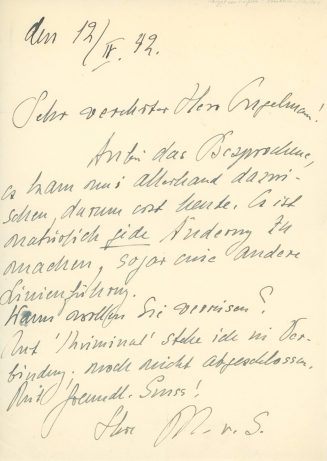 den 12/IV. 42.
Sehr verehrter Herr Engelmann!
Anbei das Besprochene,
es kam mir allerhand dazwi-
schen, darum erst heute. Es ist
natürlich jede Änderung zu
machen, sogar eine andere
Linienführung.
Wann wollen Sie verreisen?
Mit 'Kriminal' stehe ich in Ver-
bindung, noch nicht abgeschlossen.
Mit freundl. Gruss!
Ihre M. v. S.